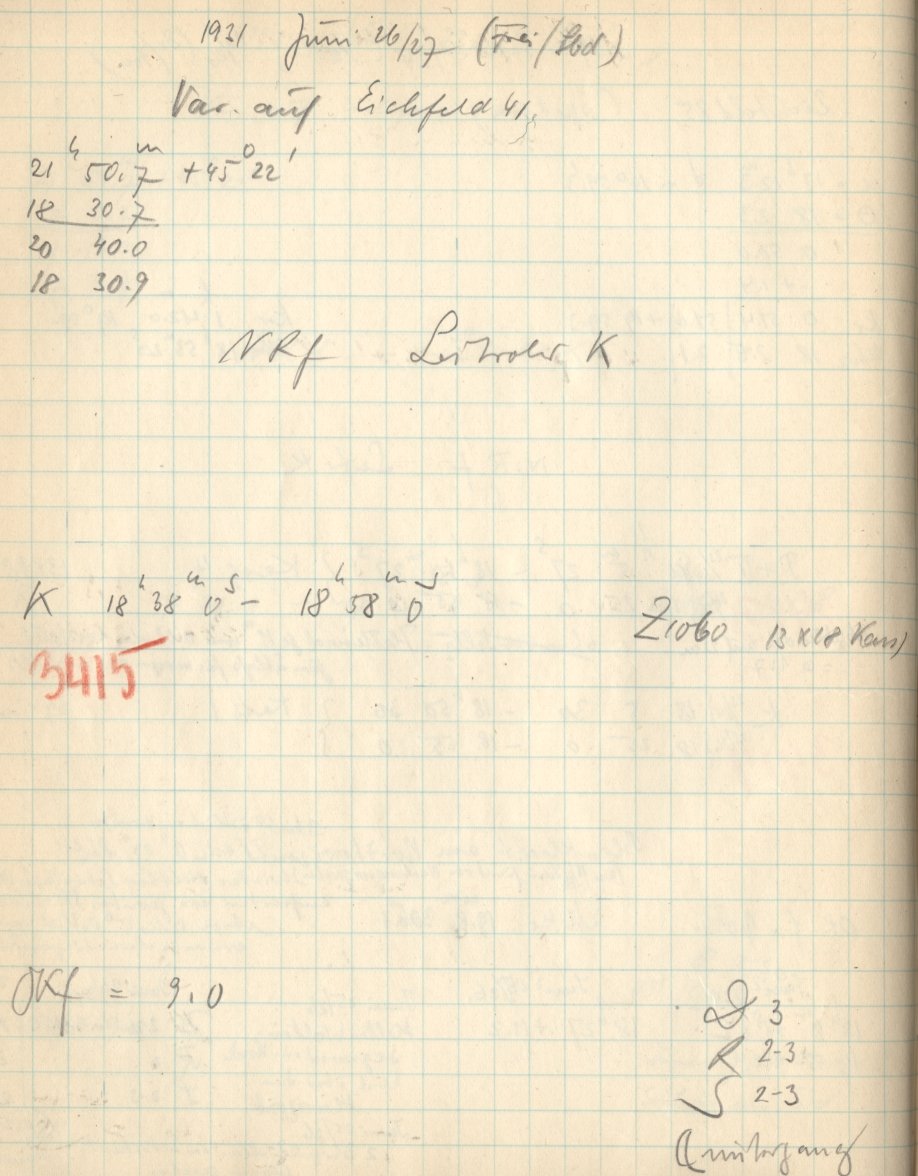 1931 Juni 26/27 (Frei/Sbd)
Var. auf Eichfeld 41
21h 50.7m +45° 22'
18 30.7
20 40.0
18 30.9
NRf Leitrohr K
K 18h 38m 0s - 18h 58m 0s
Z1060 13x18
3415
OKf = 9.0
D 3
R 2-3
S 2-3
☾ untergang